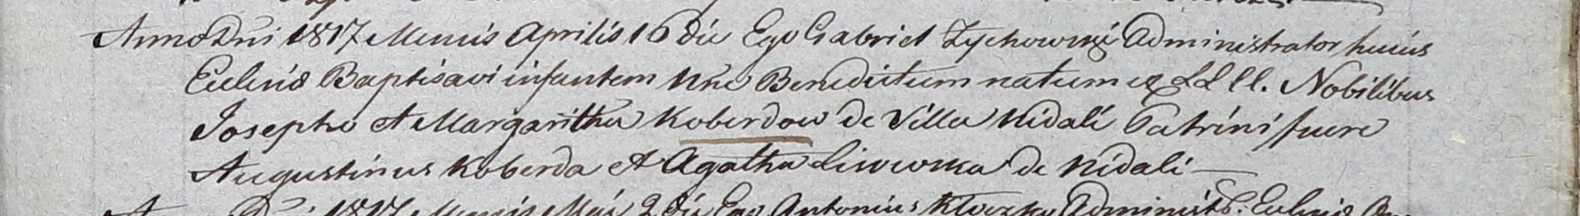 Anno Dni 1817 Mensis Aprilis 16 die Ego Gabriel Zychowski Administrator hujus
Eccl͞nis Baptisavi infantem nne Benedictum natum ex LL ll. Nobilibus
Josepho et Margaritha Koberdow de Villa Nidali Patrini fuere
Augustinus Koberda et Agatha de Nidali
Dni 1817 Mensis Maii 2 die Ego Antonius Administr.